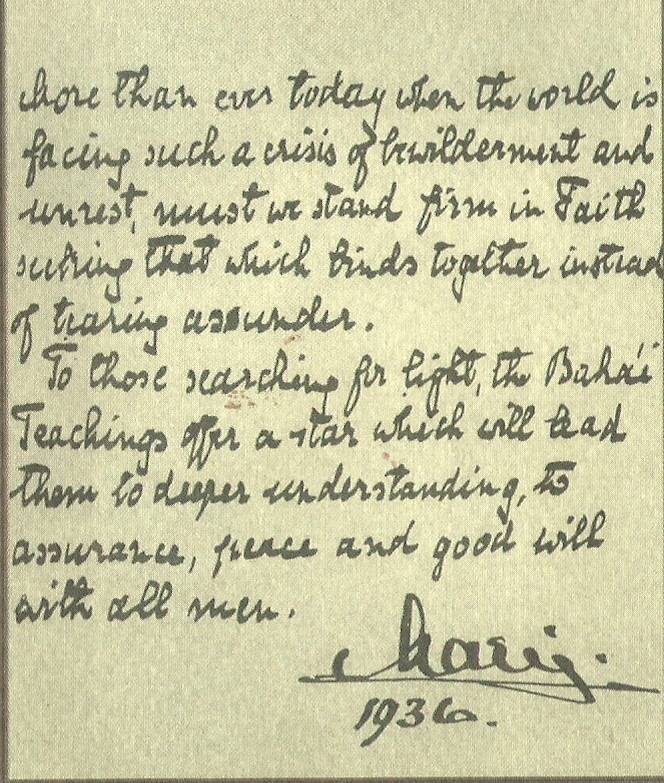 More than ever today when the world is
facing such a crisis of bewilderment and
unrest, must we stand firm in Faith
seeking that which binds together instead
of tearing assunder.
To those searching for light, the Bahá'í
Teachings offer a star which will lead
them to deeper understanding, to
assurance, peace and good will
with all men.
Marie.
1936.